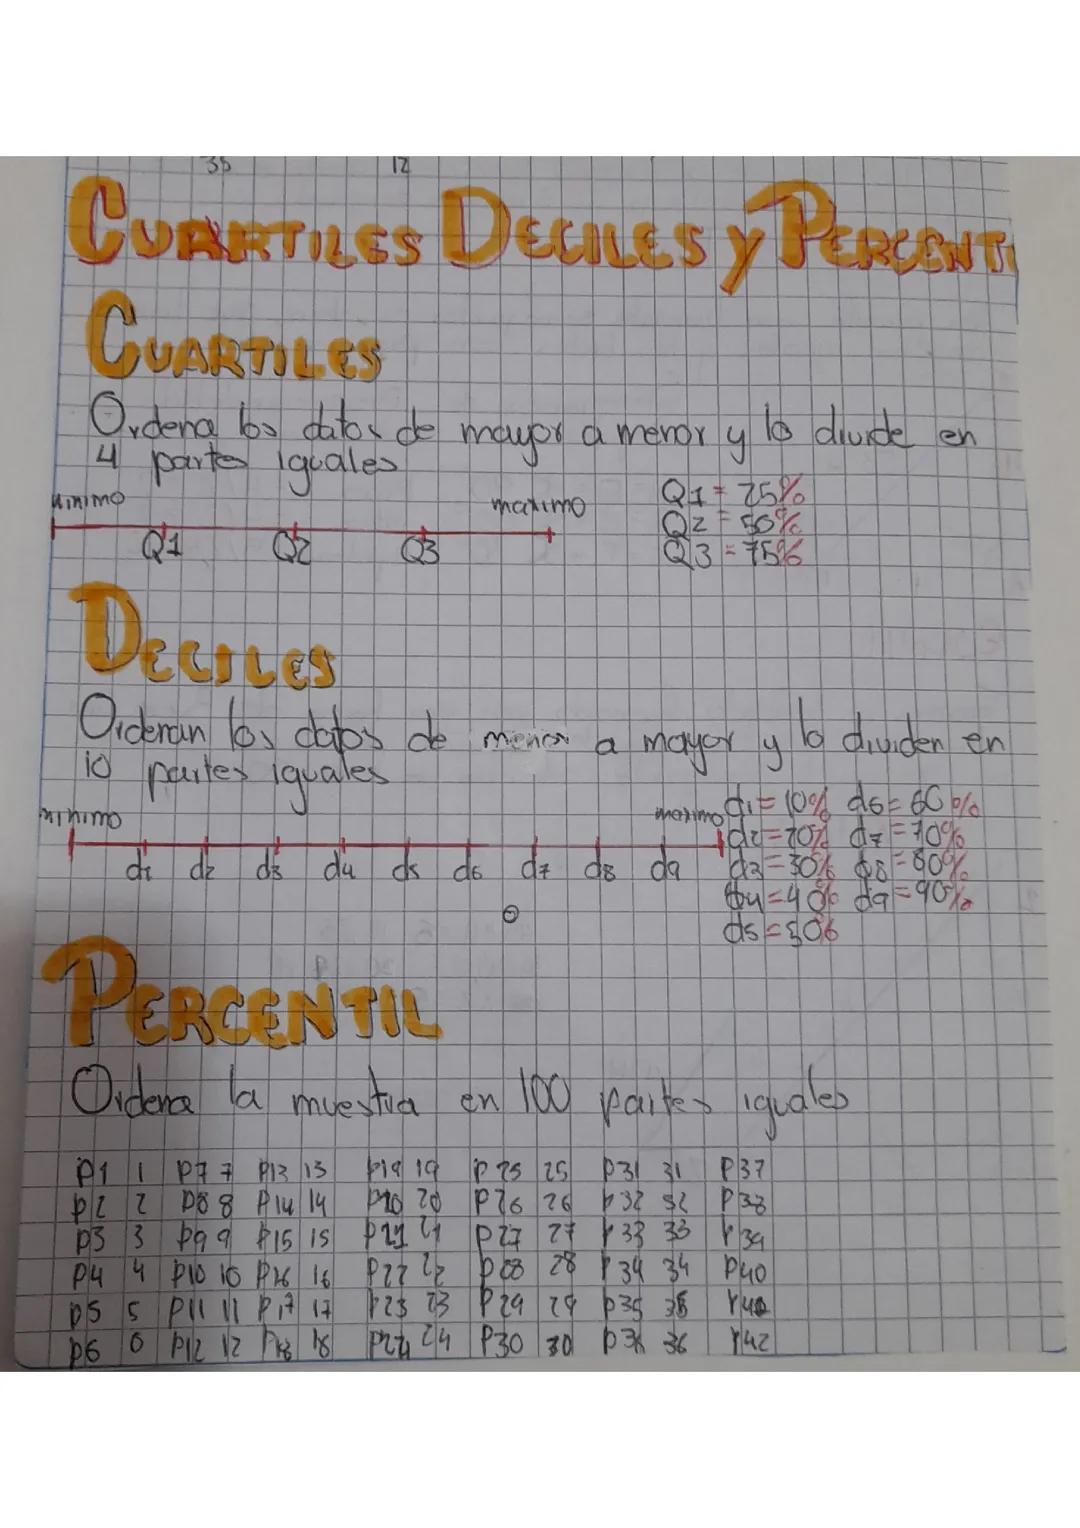 35 12
CUARTILES DECILES y PERCENTI
CUARTILES
Ordena los datos de mayor a menor y lo divide en
4 partes iguales
minimo maximo
Q1 Q2 Q3
Q1 = 25%
Q2 = 50%
Q3 = 75%
DECILES
Ordenan los datos de menor a mayor y lo dividen en
10 partes iguales
minimo maximo
d1 d2 d3 d4 d5 d6 d7 d8 d9
d1 = 10% d6 = 60%
d2 = 20% d7 = 70%
d3 = 30% d8 = 80%
d4 = 40% d9 = 90%
d5 = 50%
PERCENTIL
Ordena la muestra en 100 partes iguales
P1 1 P7 7 P13 13 P19 19 P25 25 P31 31 P37
P2 2 P8 8 P14 14 P20 20 P26 26 P32 32 P38
P3 3 P9 9 P15 15 P21 21 P27 27 P33 33 P39
P4 4 P10 10 P16 16 P22 22 P28 28 P34 34 P40
P5 5 P11 11 P17 17 P23 23 P29 29 P35 35
P6 6 P12 12 P18 18 P24 24 P30 30 P36 36 P42